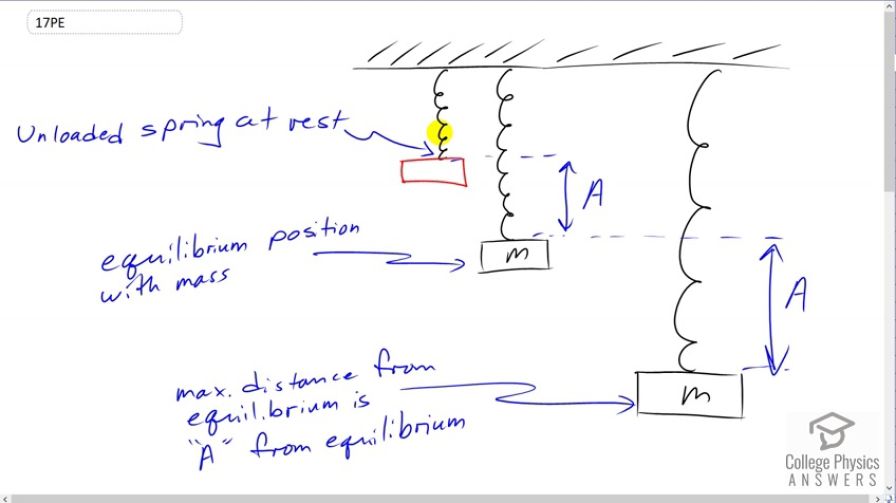 17PE
Unloaded spring at rest
A
equilibrium position
with mass
m
A
max. distance from
equilibrium is
"A" from equilibrium
m
College Physics
ANSWERS